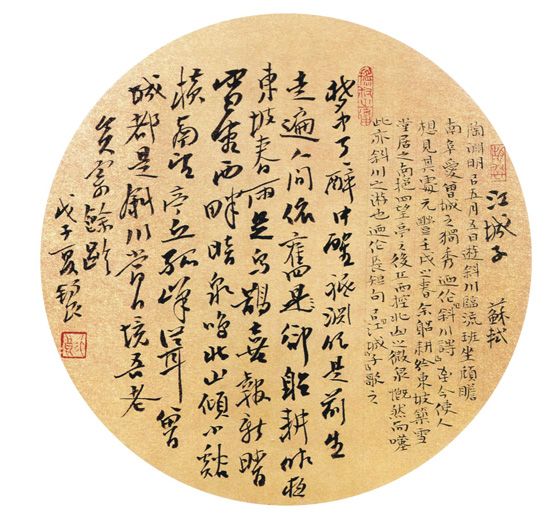 江城子 蘇軾
陶淵明㠯正月五日遊斜川臨流班坐顧瞻
南阜愛曾城之獨秀迺作斜川詩至今使人
想見其處元豐壬戌之春余躬耕於東坡築雪
堂居之南挹四望亭之後丘西控北山之微泉慨然而嘆
此亦斜川之遊也迺作長短句㠯江城子歌之
夢中了醉中醒祇淵明是前生
走遍人間依舊是卻躬耕昨夜
東坡春雨足烏鵲喜報新晴
雪堂西畔暗泉鳴北山傾小谿
橫南望亭丘孤峰聳曾
城都是斜川當日境吾老
矣寄餘齡
戊子夏